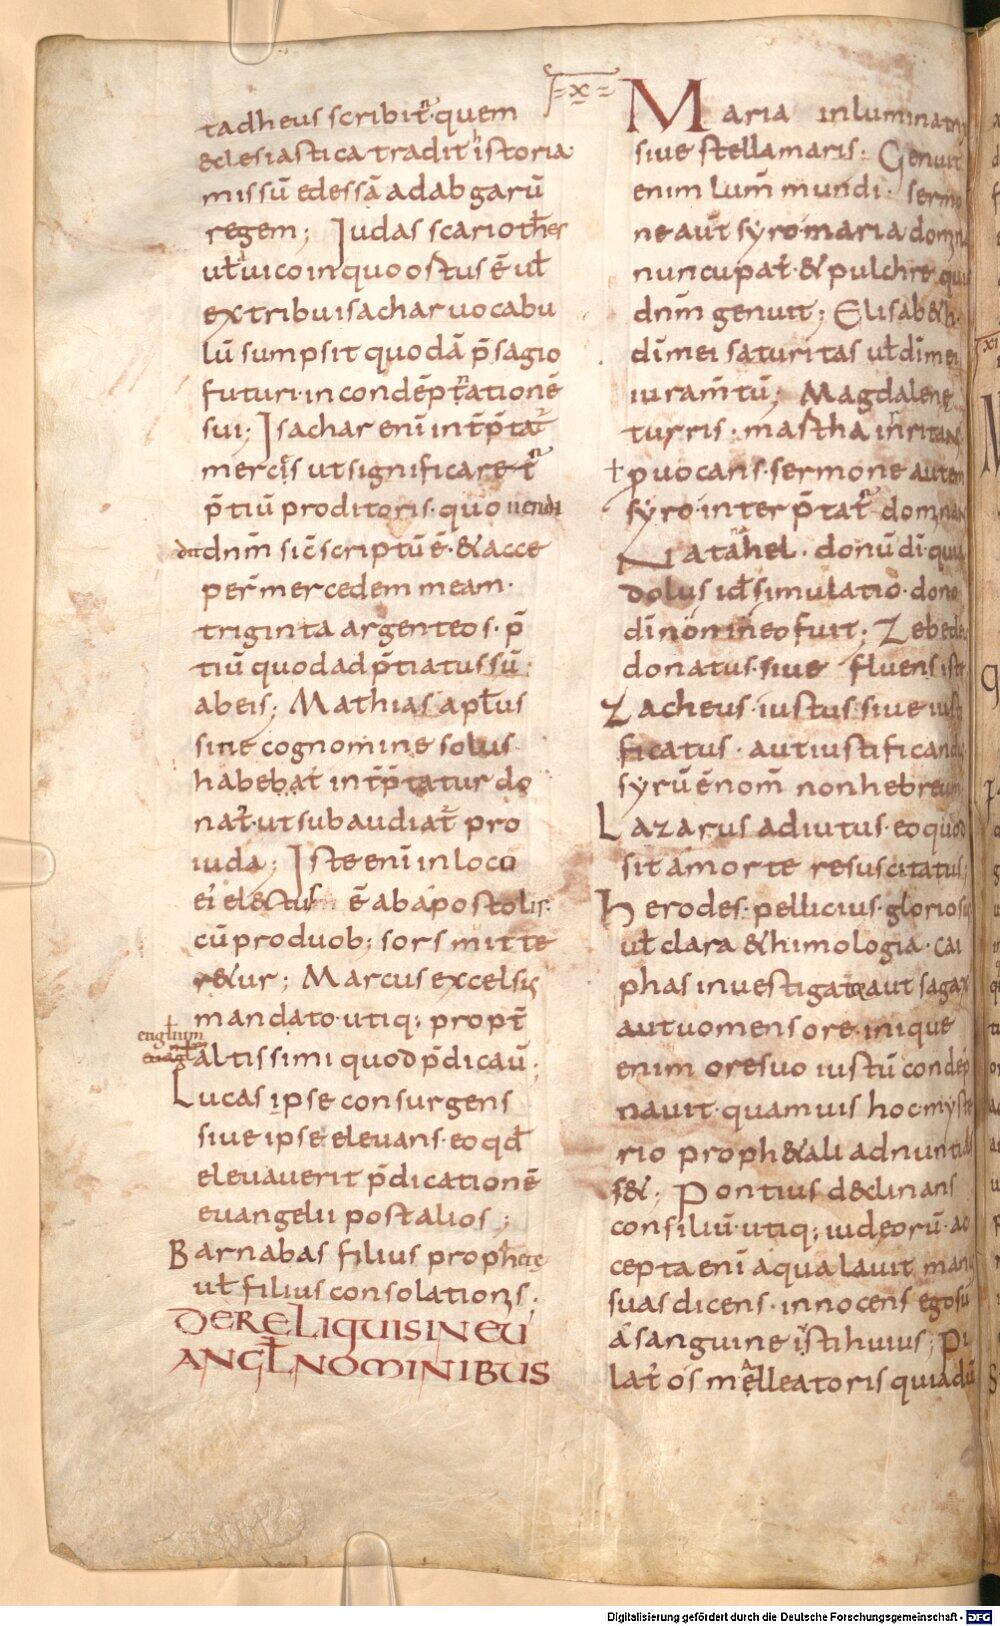 tadheus scribit̄ᷣ·quem
&clesiastica tradit istoria
missū edessā adabgarū
regem; Judas scariothes
uł uico in quo ostus ē uł
ex tribu isachar uocabu
lū sumpsit quodā p̄sagio
futuri·in condēp̄tationē
sui; Jsachar enī int̄p̄tat̄ᷣ
mercis ut significaretᷣ
p̄tiū proditoris·quo uendi
dit dnm̄ sic̄ scriptū ē·&acce
per̄ mercedem meam·
triginta argenteos·p̄
tiū quod adp̄tiatus sū
abeis; Mathias apłus
sine cognomine solus
habebat̄ int̄p̄tatur do
nat̄·ut subaudiat̄ᷣ pro
iuda; Jste enī in loco
ei electus ē ab apostolis·
cū pro duob; sors mitte
r&ur; Marcus excelsus
mandato·utiq; propt̄
englium
altissimi quod p̄dicaū;
Lucas ipse consurgens
siue ipse eleuans·eo qđ
eleuauerit p̄dicationē
euangelii post alios;
Barnabas filius prophete
uł filius consolationis;
DE RELIQUIS IN EU
ANGŁ NOMINIBUS
x
Maria inluminatrix
siue stella maris; Genuit
enim lum̄ mundi· sermo
ne aut̄ syro·maria domna
nuncupat̄·& pulchre quia
dnm̄ genuit; Elisab&h·
dī mei saturitas uł dī mei
iuram̄tū; Magdalene
turris· mastha inritans
puocans·sermone autem
syro·interp̄tat̄ᷣ domnans
Natahel· donū dī·quia
dolus id simulatio·dono
dī nōn in eo fuit; Zebedeus
donatus·siue fluens iste
Zacheus·iustus·siue iusti
ficatus· aut iustificandus
syrū ē nom̄ non hebreum
Lazarus adiutus·eo quod
sit amorte resuscitatus;
Herodes·pellicius·gloriosus
uł clara & himologia· cai
phas inuestigator aut sagax
aut uomens ore·inique
enim ore suo iustū condēp
nauit·quamuis hoc myste
rio proph&ali adnuntias
s&; Pontius declinans
consiliū·utiq; iudeorū·ac
cepta enī aqua lauit manus
suas dicens·innocens ego sū
a sanguine iusti huius; Pi
lat̄ os melleatoris quia dū